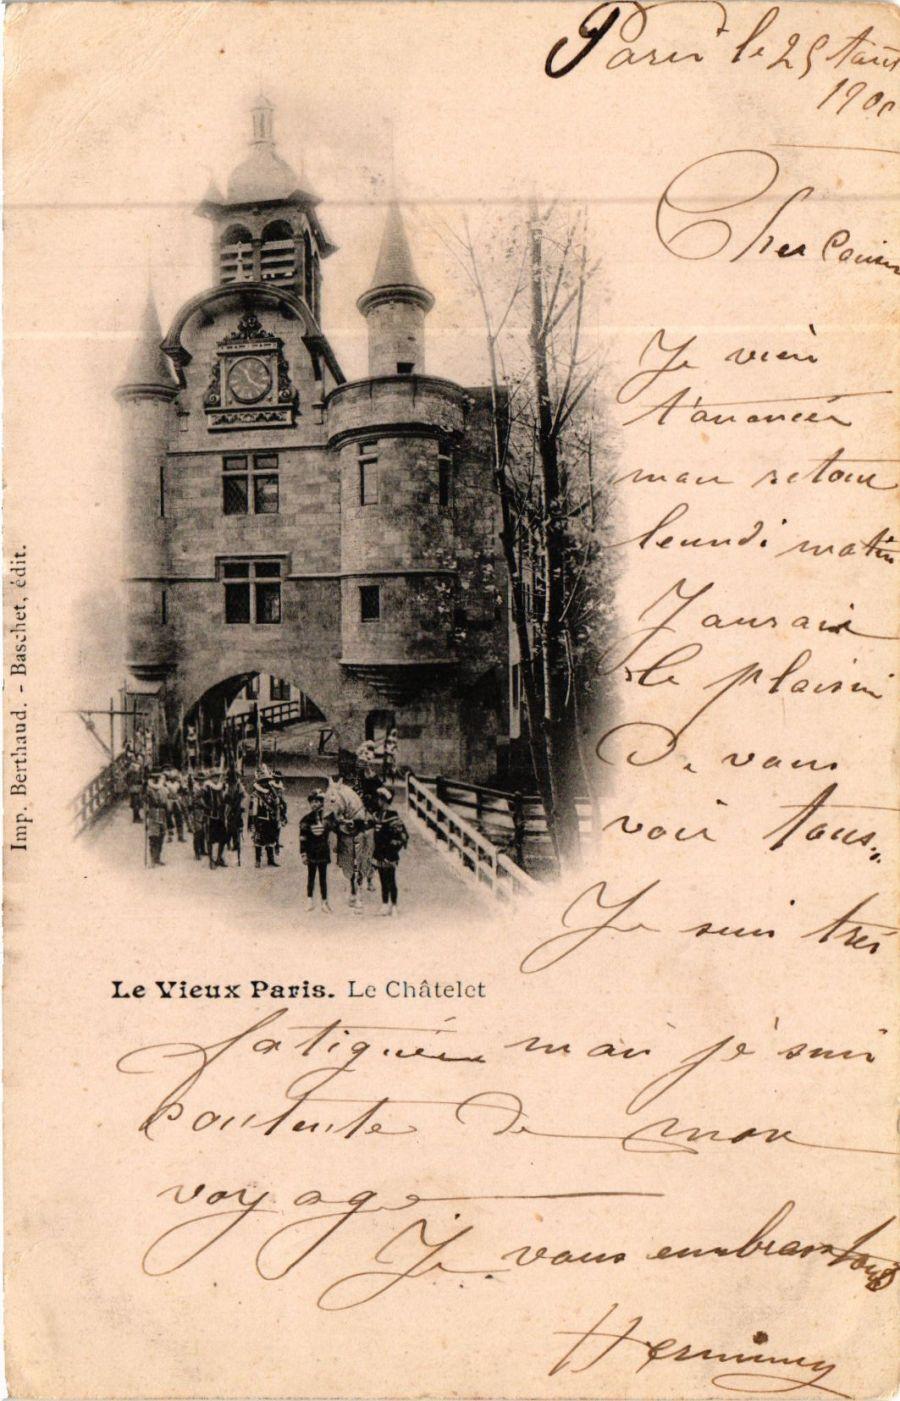 Paris le 25 Août
1900
Cher Cousin
Je vien
t'anoncér
mon retour
leundi matin
J'aurais
le plaisir
De vous
voir tous.
Je suis très
Le Vieux Paris. Le Châtelet
fatiguée mai je suis
contente de mon
voyage
Je vous embrass tous
Imp. Berthaud. - Baschet, édit.